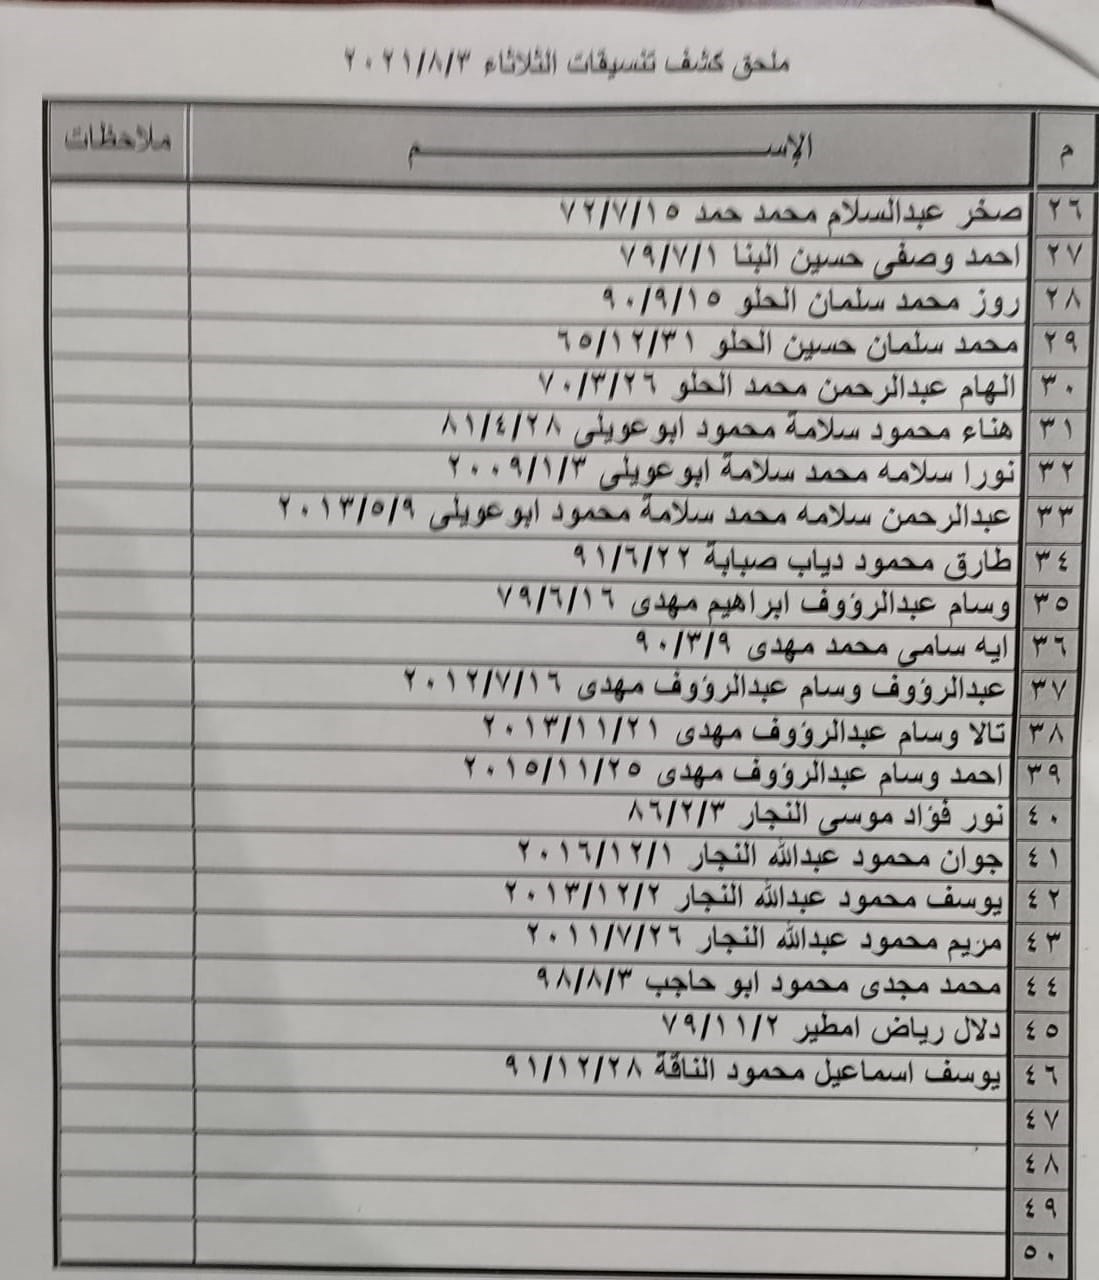 ملحق كشف تنسيقات الثلاثاء ٢٠٢١/٨/٣
م الإســــــم ملاحظات
٢٦ صخر عبدالسلام محمد حمد ٧٢/٧/١٥
٢٧ احمد وصفى حسين البنا ٧٩/٧/١
٢٨ روز محمد سلمان الحلو ٩٠/٩/١٥
٢٩ محمد سلمان حسين الحلو ٦٥/١٢/٣١
٣٠ الهام عبدالرحمن محمد الحلو ٧٠/٣/٢٦
٣١ هناء محمود سلامة محمود ابو عويلى ٨١/٤/٢٨
٣٢ نورا سلامه محمد سلامة ابو عويلى ٢٠٠٩/١/٣
٣٣ عبدالرحمن سلامه محمد سلامة محمود ابو عويلى ٢٠١٣/٥/٩
٣٤ طارق محمود دياب صبابة ٩١/٦/٢٢
٣٥ وسام عبدالرؤوف ابراهيم مهدى ٧٩/٦/١٦
٣٦ ايه سامى محمد مهدى ٩٠/٣/٩
٣٧ عبدالرؤوف وسام عبدالرؤوف مهدى ٢٠١٢/٧/١٦
٣٨ تالا وسام عبدالرؤوف مهدى ٢٠١٣/١١/٢١
٣٩ احمد وسام عبدالرؤوف مهدى ٢٠١٥/١١/٢٥
٤٠ نور فؤاد موسى النجار ٨٦/٢/٣
٤١ جوان محمود عبدالله النجار ٢٠١٦/١٢/١
٤٢ يوسف محمود عبدالله النجار ٢٠١٣/١٢/٢
٤٣ مريم محمود عبدالله النجار ٢٠١١/٧/٢٦
٤٤ محمد مجدى محمود ابو حاجب ٩٨/٨/٣
٤٥ دلال رياض امطير ٧٩/١١/٢
٤٦ يوسف اسماعيل محمود الناقة ٩١/١٢/٢٨
٤٧
٤٨
٤٩
٥٠